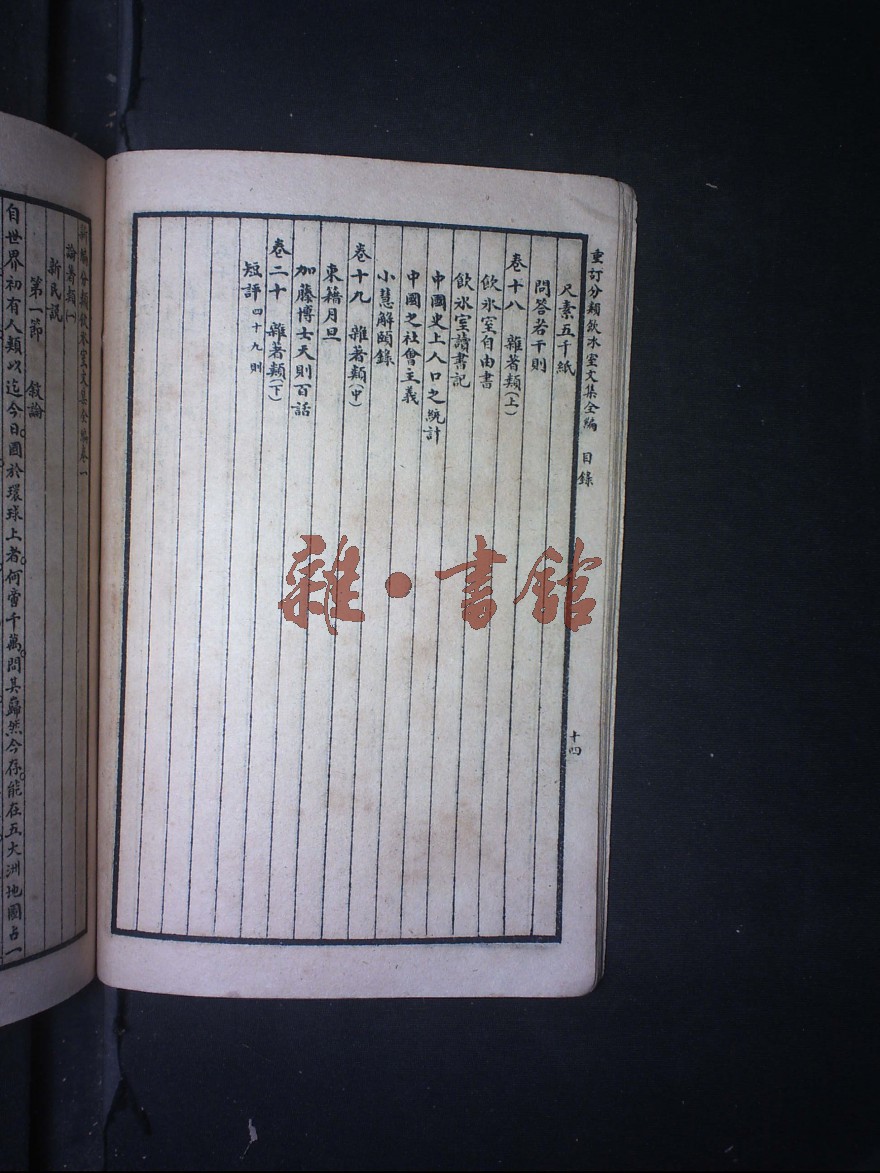 重訂分類飲冰室文集全編 目錄
十四
尺素五千紙
問答若干則
卷十八 雜著類(上)
飲冰室自由書
飲冰室讀書記
中國史上人口之統計
中國之社會主義
小慧解頤錄
卷十九 雜著類(中)
東籍月旦
加藤博士天則百話
卷二十 雜著類(下)
短評 四十九則
新編分類飲冰室文集全編卷一
論著類(一)
新民說
第一節 敘論
自世界初有人類以迄今日國於環球上者何啻千萬問其巋然今存能在五大洲地圖占一
雜·書館